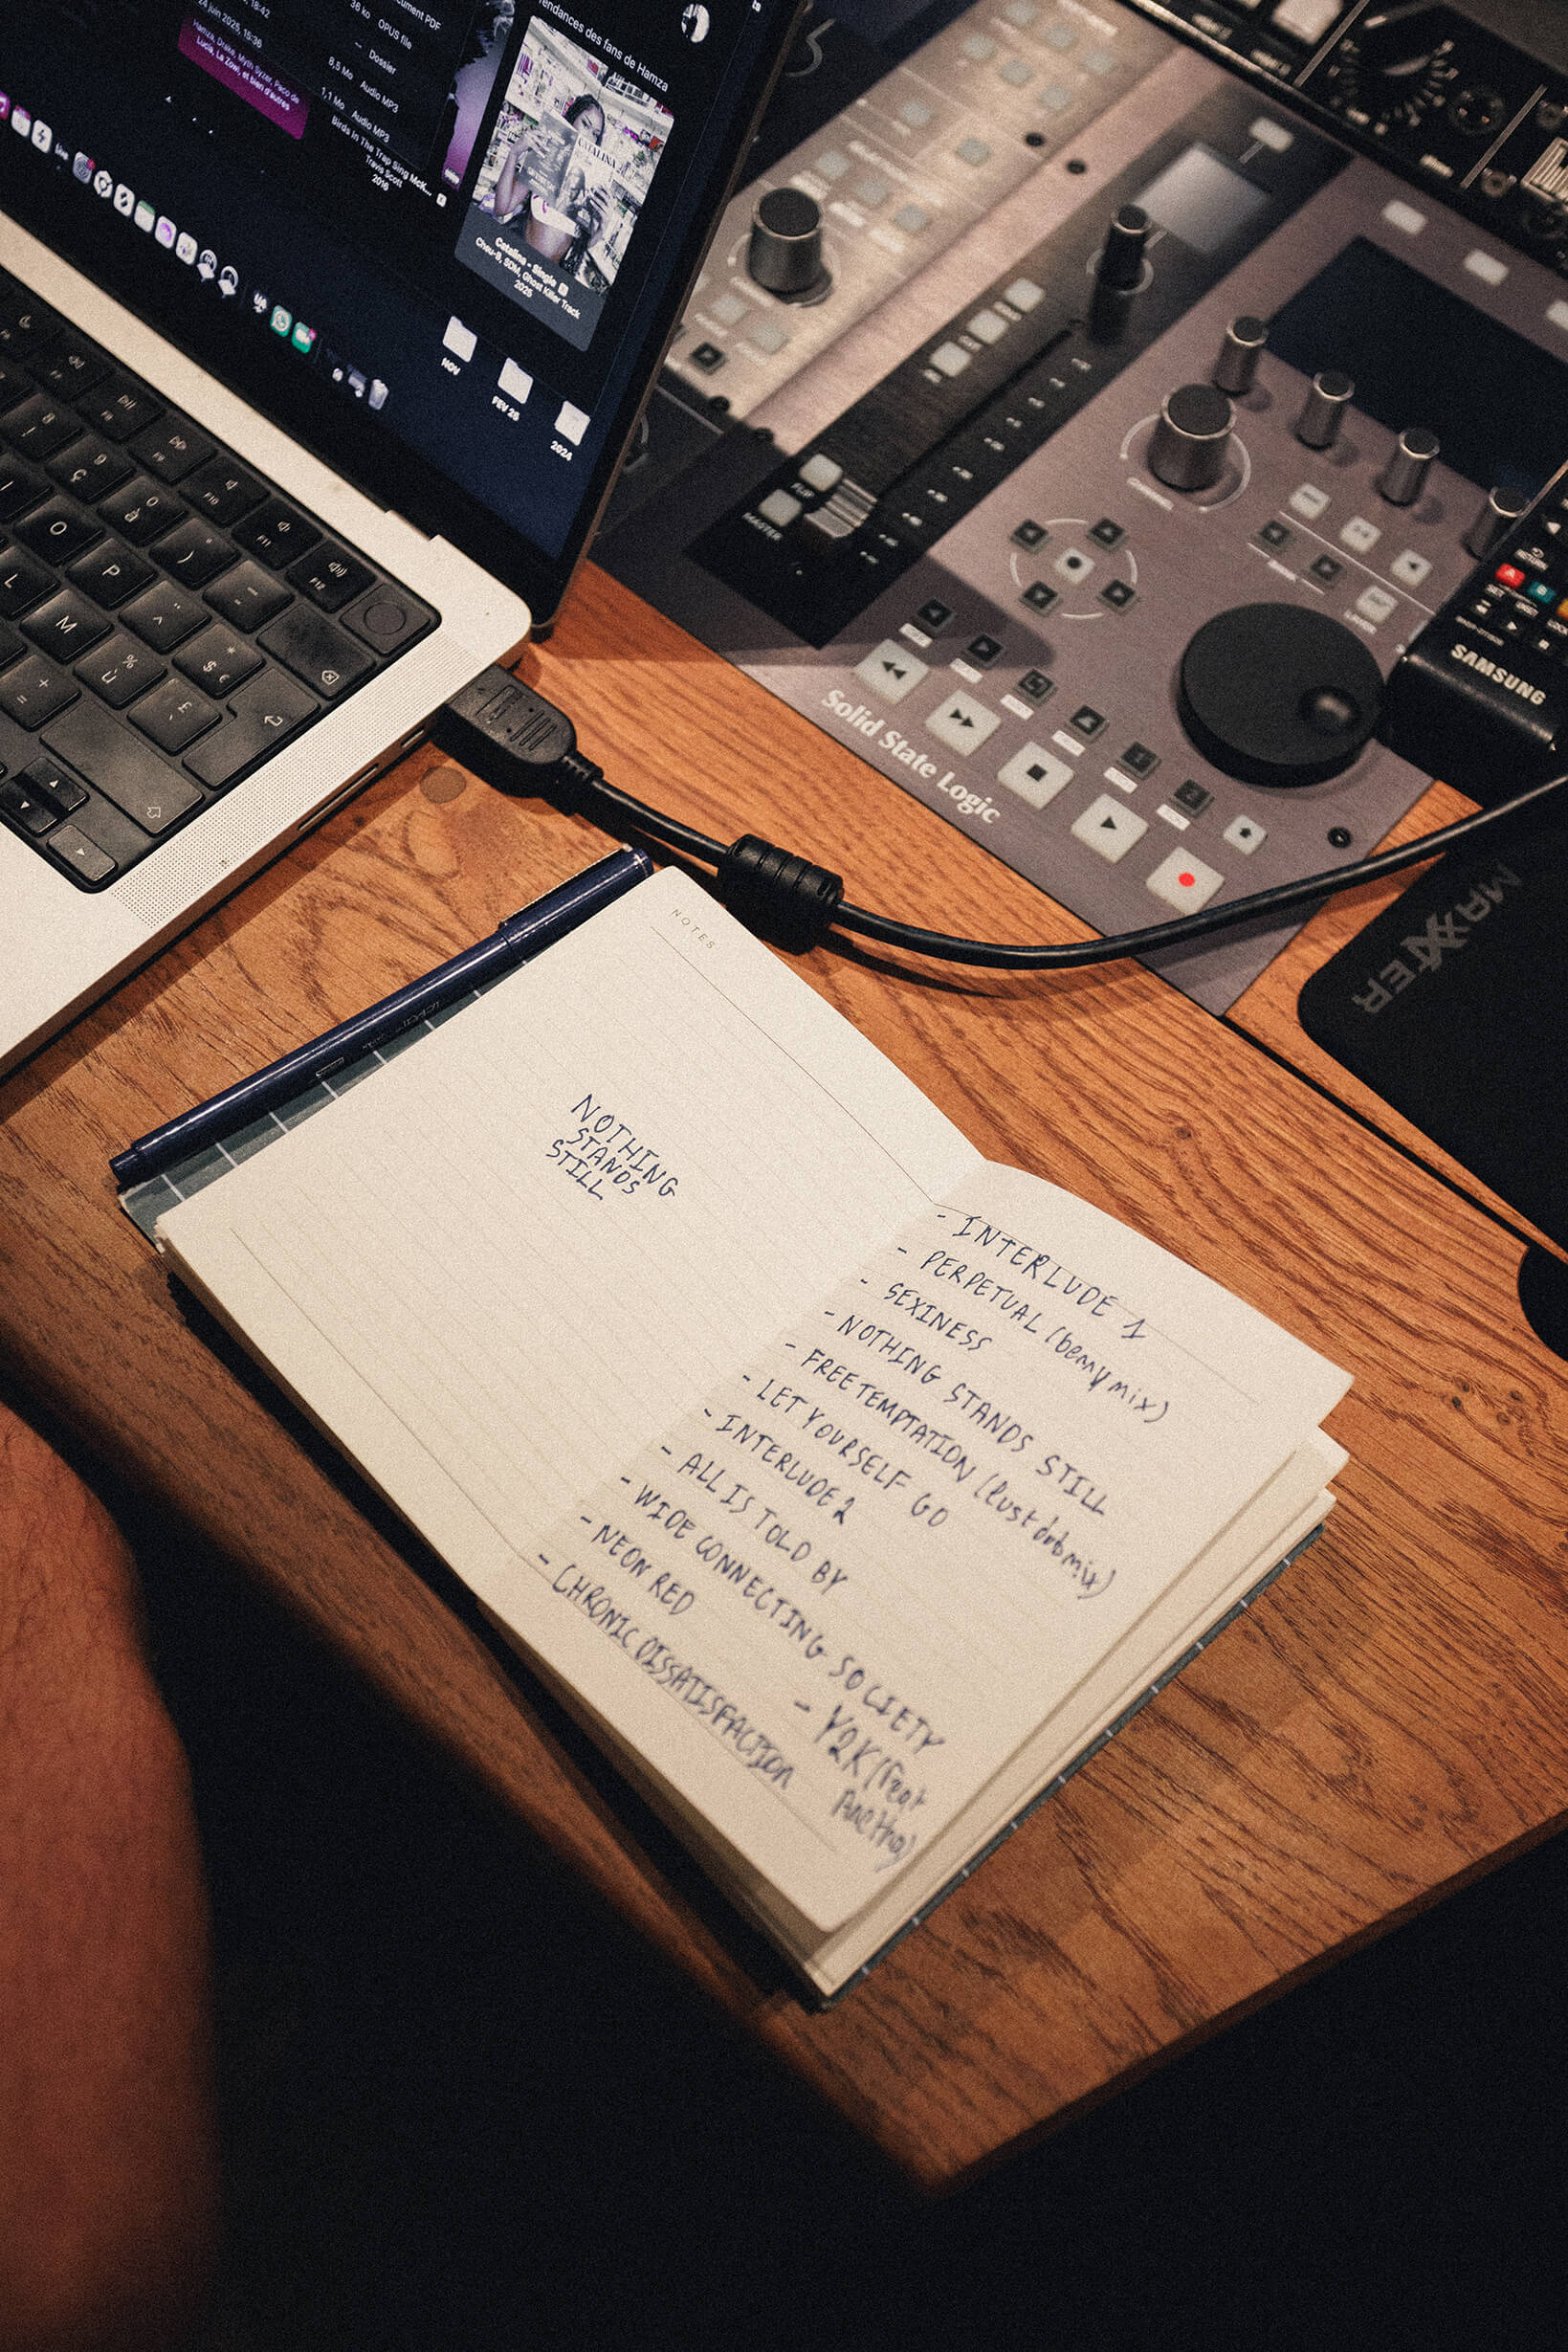 18:42
24 juin 2025, 15:36
Hamza, Drake, Myth Syzer, Paco de
Lucía, La Zowi, et bien d'autres
36 ko
OPUS file
--
Dossier
8,5 Mo
Audio MP3
1,1 Mo
Audio MP3
Birds In The Trap Sing McK...
Travis Scott
2016
Tendances des fans de Hamza
CATALINA
Catalina - Single
Chou-B, SDM, Ghost Killer Track
2025
NOV
FEV 25
2024
O
P
L
M
F10
F11
F12
FLIP
MASTER
CHANNEL
Solid State Logic
RETURN
A
B
SAMSUNG
MAXXTER
NOTES
NOTHING
STANDS
STILL
- INTERLUDE 1
- PERPETUAL (bemy mix)
- SEXINESS
- NOTHING STANDS STILL
- FREE TEMPTATION (lust dub mix)
- LET YOURSELF GO
- INTERLUDE 2
- ALL IS TOLD BY
- WIDE CONNECTING SOCIETY
- NEON RED
- CHRONIC DISSATISFACTION
- Y2K (feat